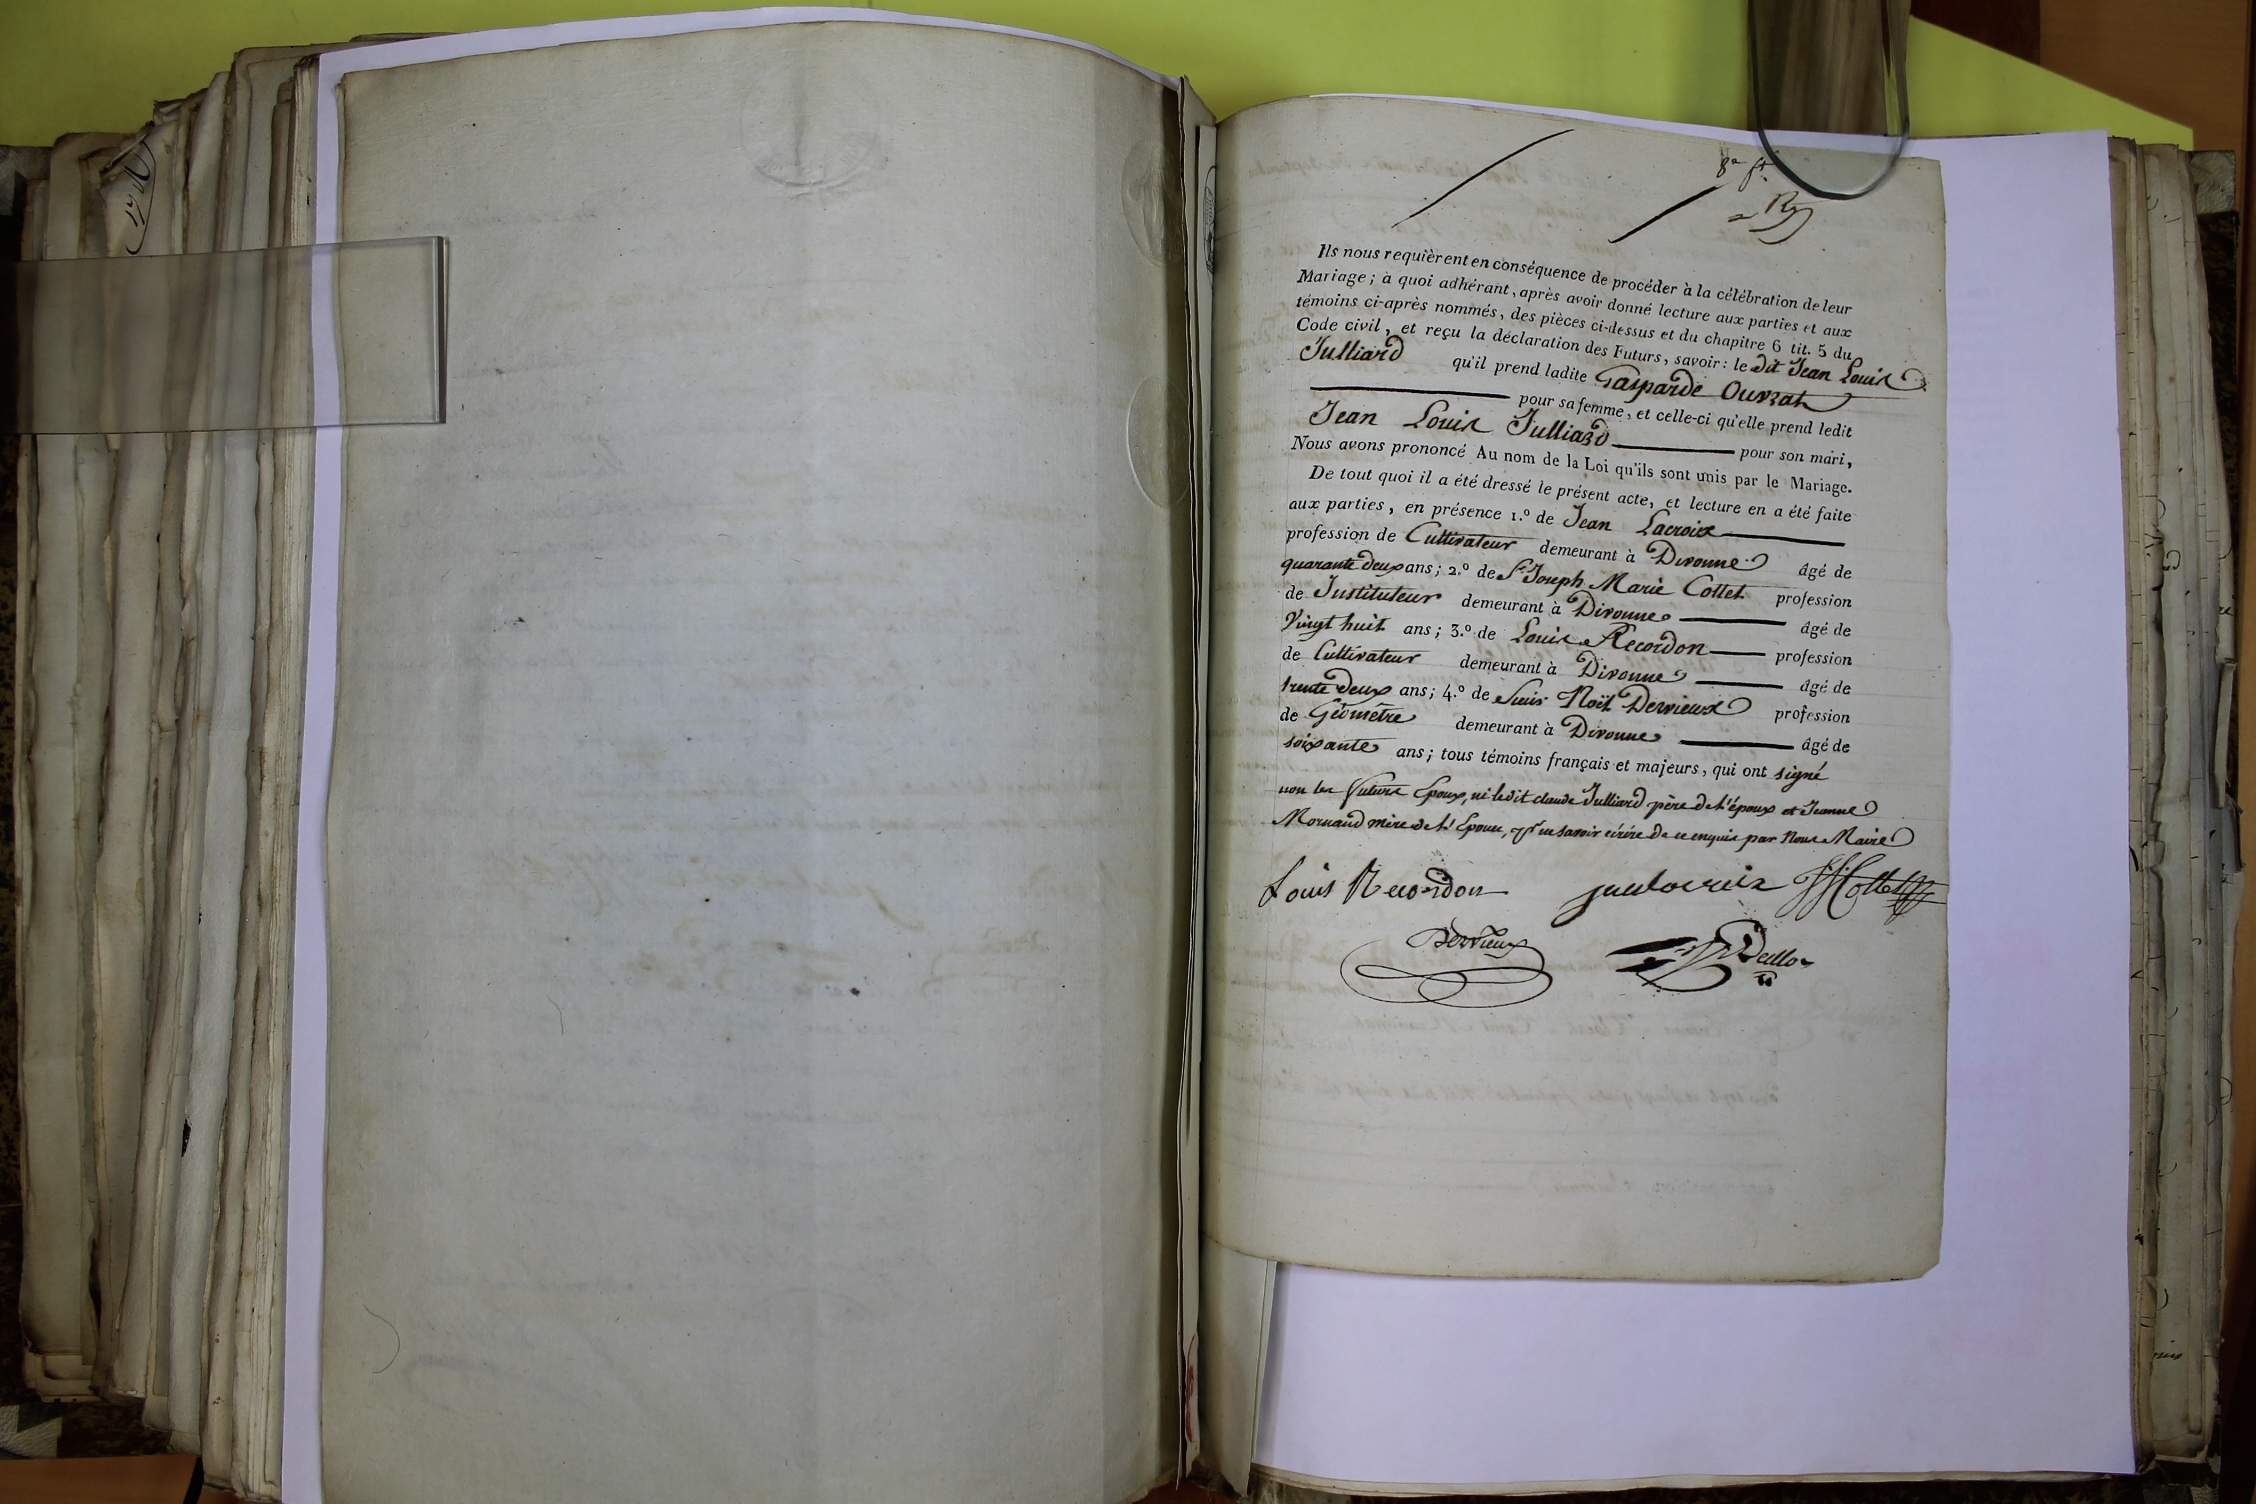 8e ft.
Ils nous requièrent en conséquence de procéder à la célébration de leur
Mariage; à quoi adhérant, après avoir donné lecture aux parties et aux
témoins ci-après nommés, des pièces ci-dessus et du chapitre 6 tit. 5 du
Code civil, et reçu la déclaration des Futurs, savoir: le dit Jean Louis
Julliard qu'il prend ladite Gasparde Ouvrat
pour sa femme, et celle-ci qu'elle prend ledit
Jean Louis Julliard pour son mari,
Nous avons prononcé Au nom de la Loi qu'ils sont unis par le Mariage.
De tout quoi il a été dressé le présent acte, et lecture en a été faite
aux parties, en présence 1.º de Jean Lacroix
profession de Cultivateur demeurant à Divonne âgé de
quarante deux ans; 2.º de Sr Joseph Marie Collet profession
de Instituteur demeurant à Divonne âgé de
Vingt huit ans; 3.º de Louis Recordon profession
de Cultivateur demeurant à Divonne âgé de
trente deux ans; 4.º de Noël Dervieux profession
de Géomètre demeurant à Divonne âgé de
soixante ans; tous témoins français et majeurs, qui ont signé
non les futurs Epoux, ni ledit claude Julliard père de l'époux et Jeanne
Mornand mère de l'Epouse, pr ne savoir écrire de ce enquis par Nous Maire
Louis Recordon jean lacroix JM Collet
Dervieux